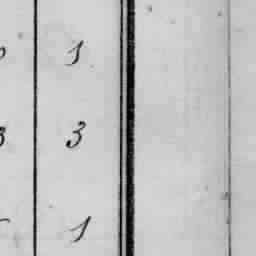 1
3 3
1